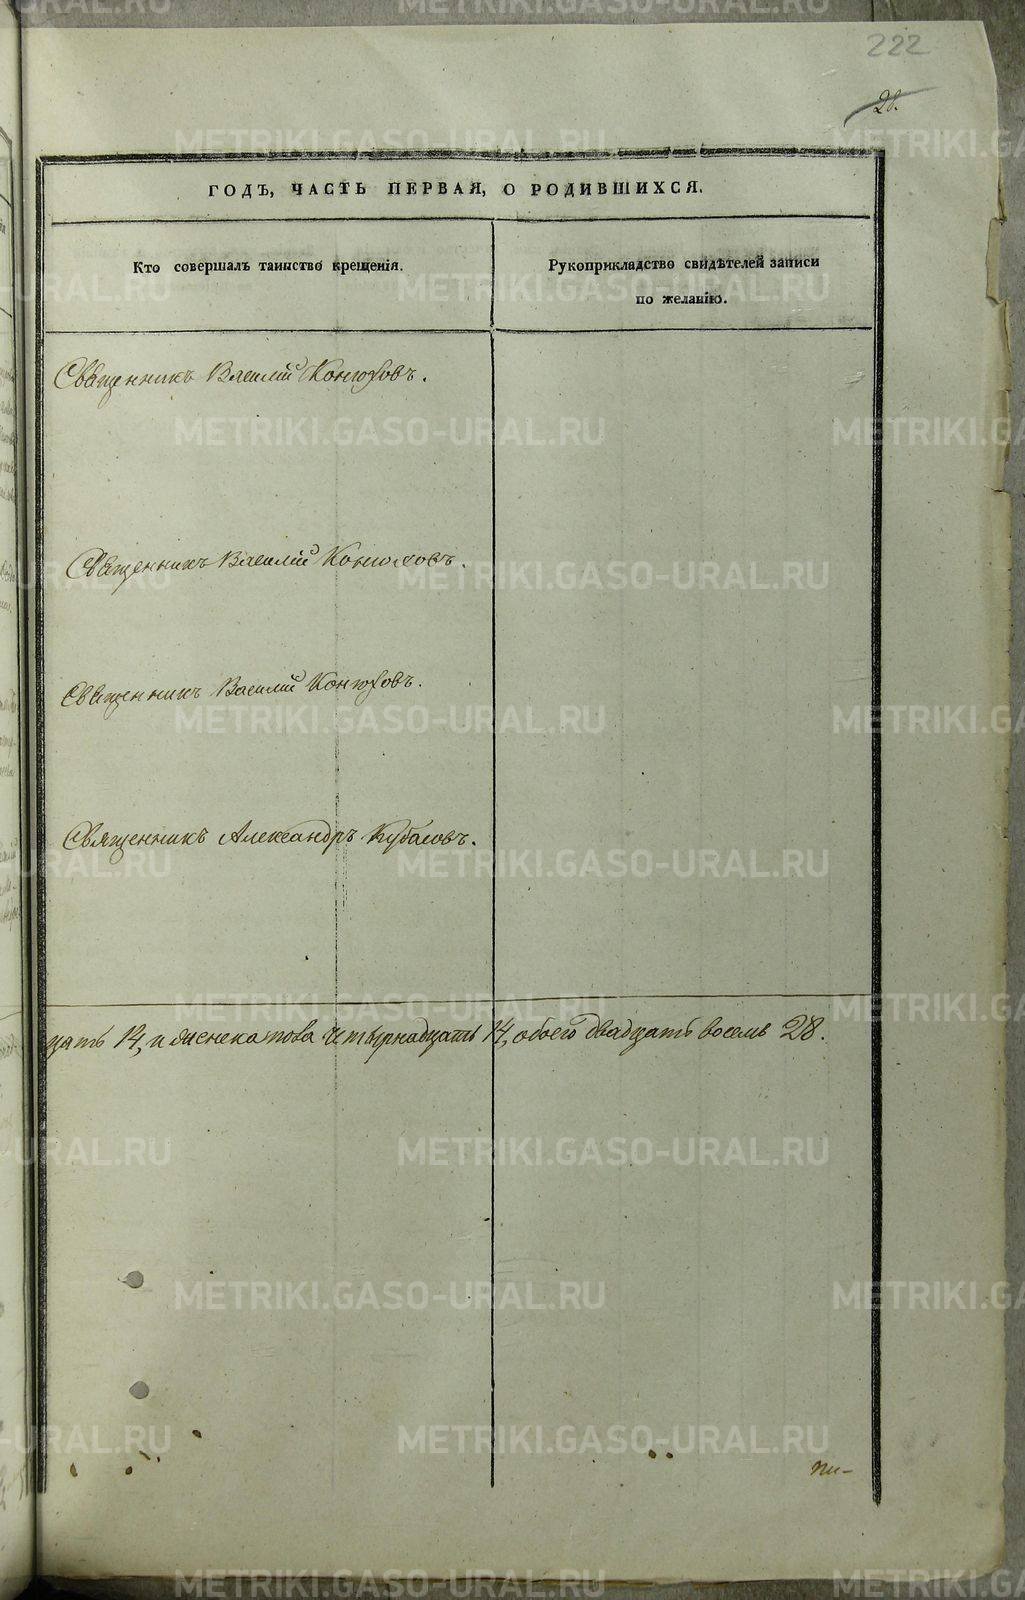 222
28.
ГОДЪ, ЧАСТЬ ПЕРВАЯ, О РОДИВШИХСЯ.
Кто совершалъ таинство крещенія.
Рукоприкладство свидѣтелей записи
по желанію.
Священникъ Василій Конюховъ.
Священникъ Василій Конюховъ.
Священникъ Василій Конюховъ.
Священникъ Александръ
цать 14, и женска пола четырнадцать 14, обоего двадцать восемь 28.
METRIKI.GASO-URAL.RU